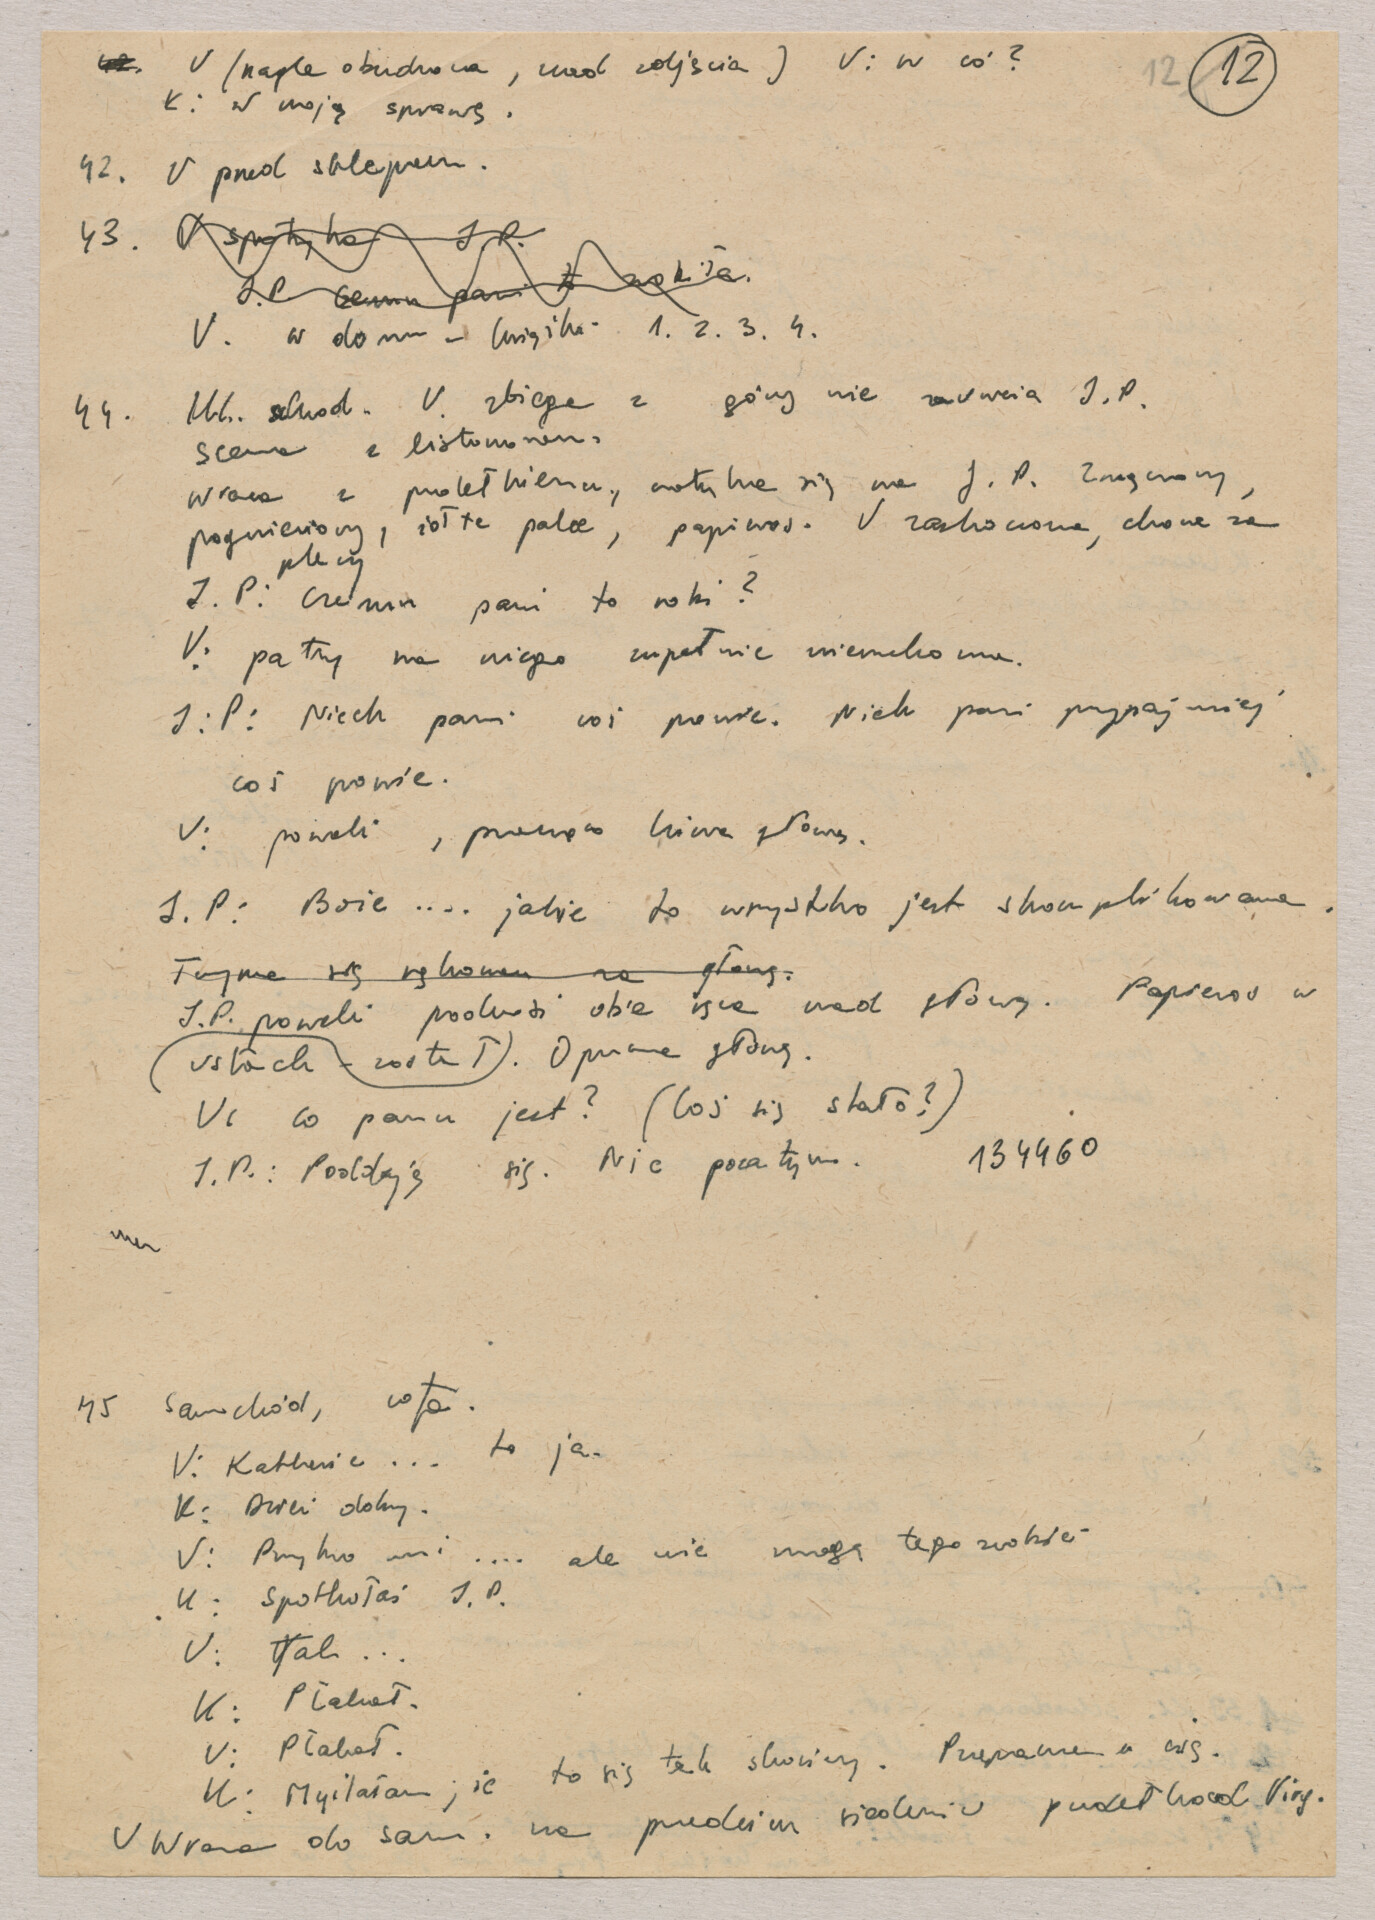 V (nagle obudzona, znad zdjęcia) V: w coś? 12 12
K: w moją sprawę.
42. V przed sklepem.
43. V spotyka J.P.
J.P. czemu pani to zrobiła.
V. w domu – książka 1. 2. 3. 4.
44. Kl. schod. V. zbiega z góry nie zauważa J.P.
Scena z listonoszem.
Wraca z pudełkiem, natyka się na J.P. Zmęczony,
pognieciony, żółte palce, papieros. V zaskoczona, chowa za
plecy
J.P: Czemu pani to robi?
V: patrzy na niego zupełnie nieruchoma.
J.P: Niech pani coś powie. Niech pani przynajmniej
coś powie.
V: powoli, przecząco kiwa głową.
J.P: Boże .... jakie to wszystko jest skomplikowane.
Trzyma się rękoma za głowę.
J.P. powoli podnosi obie ręce nad głowę. Papieros w
ustach – został). Opuszcza głowę.
V: co panu jest? (Coś się stało?)
J.P.: Poddaję się. Nic poza tym. 134460
45 Samochód, cofa.
V: Kathernie ... to ja.
K: Dzień dobry.
V: Przykro mi .... ale nie mogę tego zrobić
K: Spotkałaś J.P.
V: Tak ...
K: Płakał.
V: Płakał.
K: Myślałam, że to się tak skończy. Przepraszam cię.
V Wraca do sam. na przednim siedzeniu pudełko od Virg.